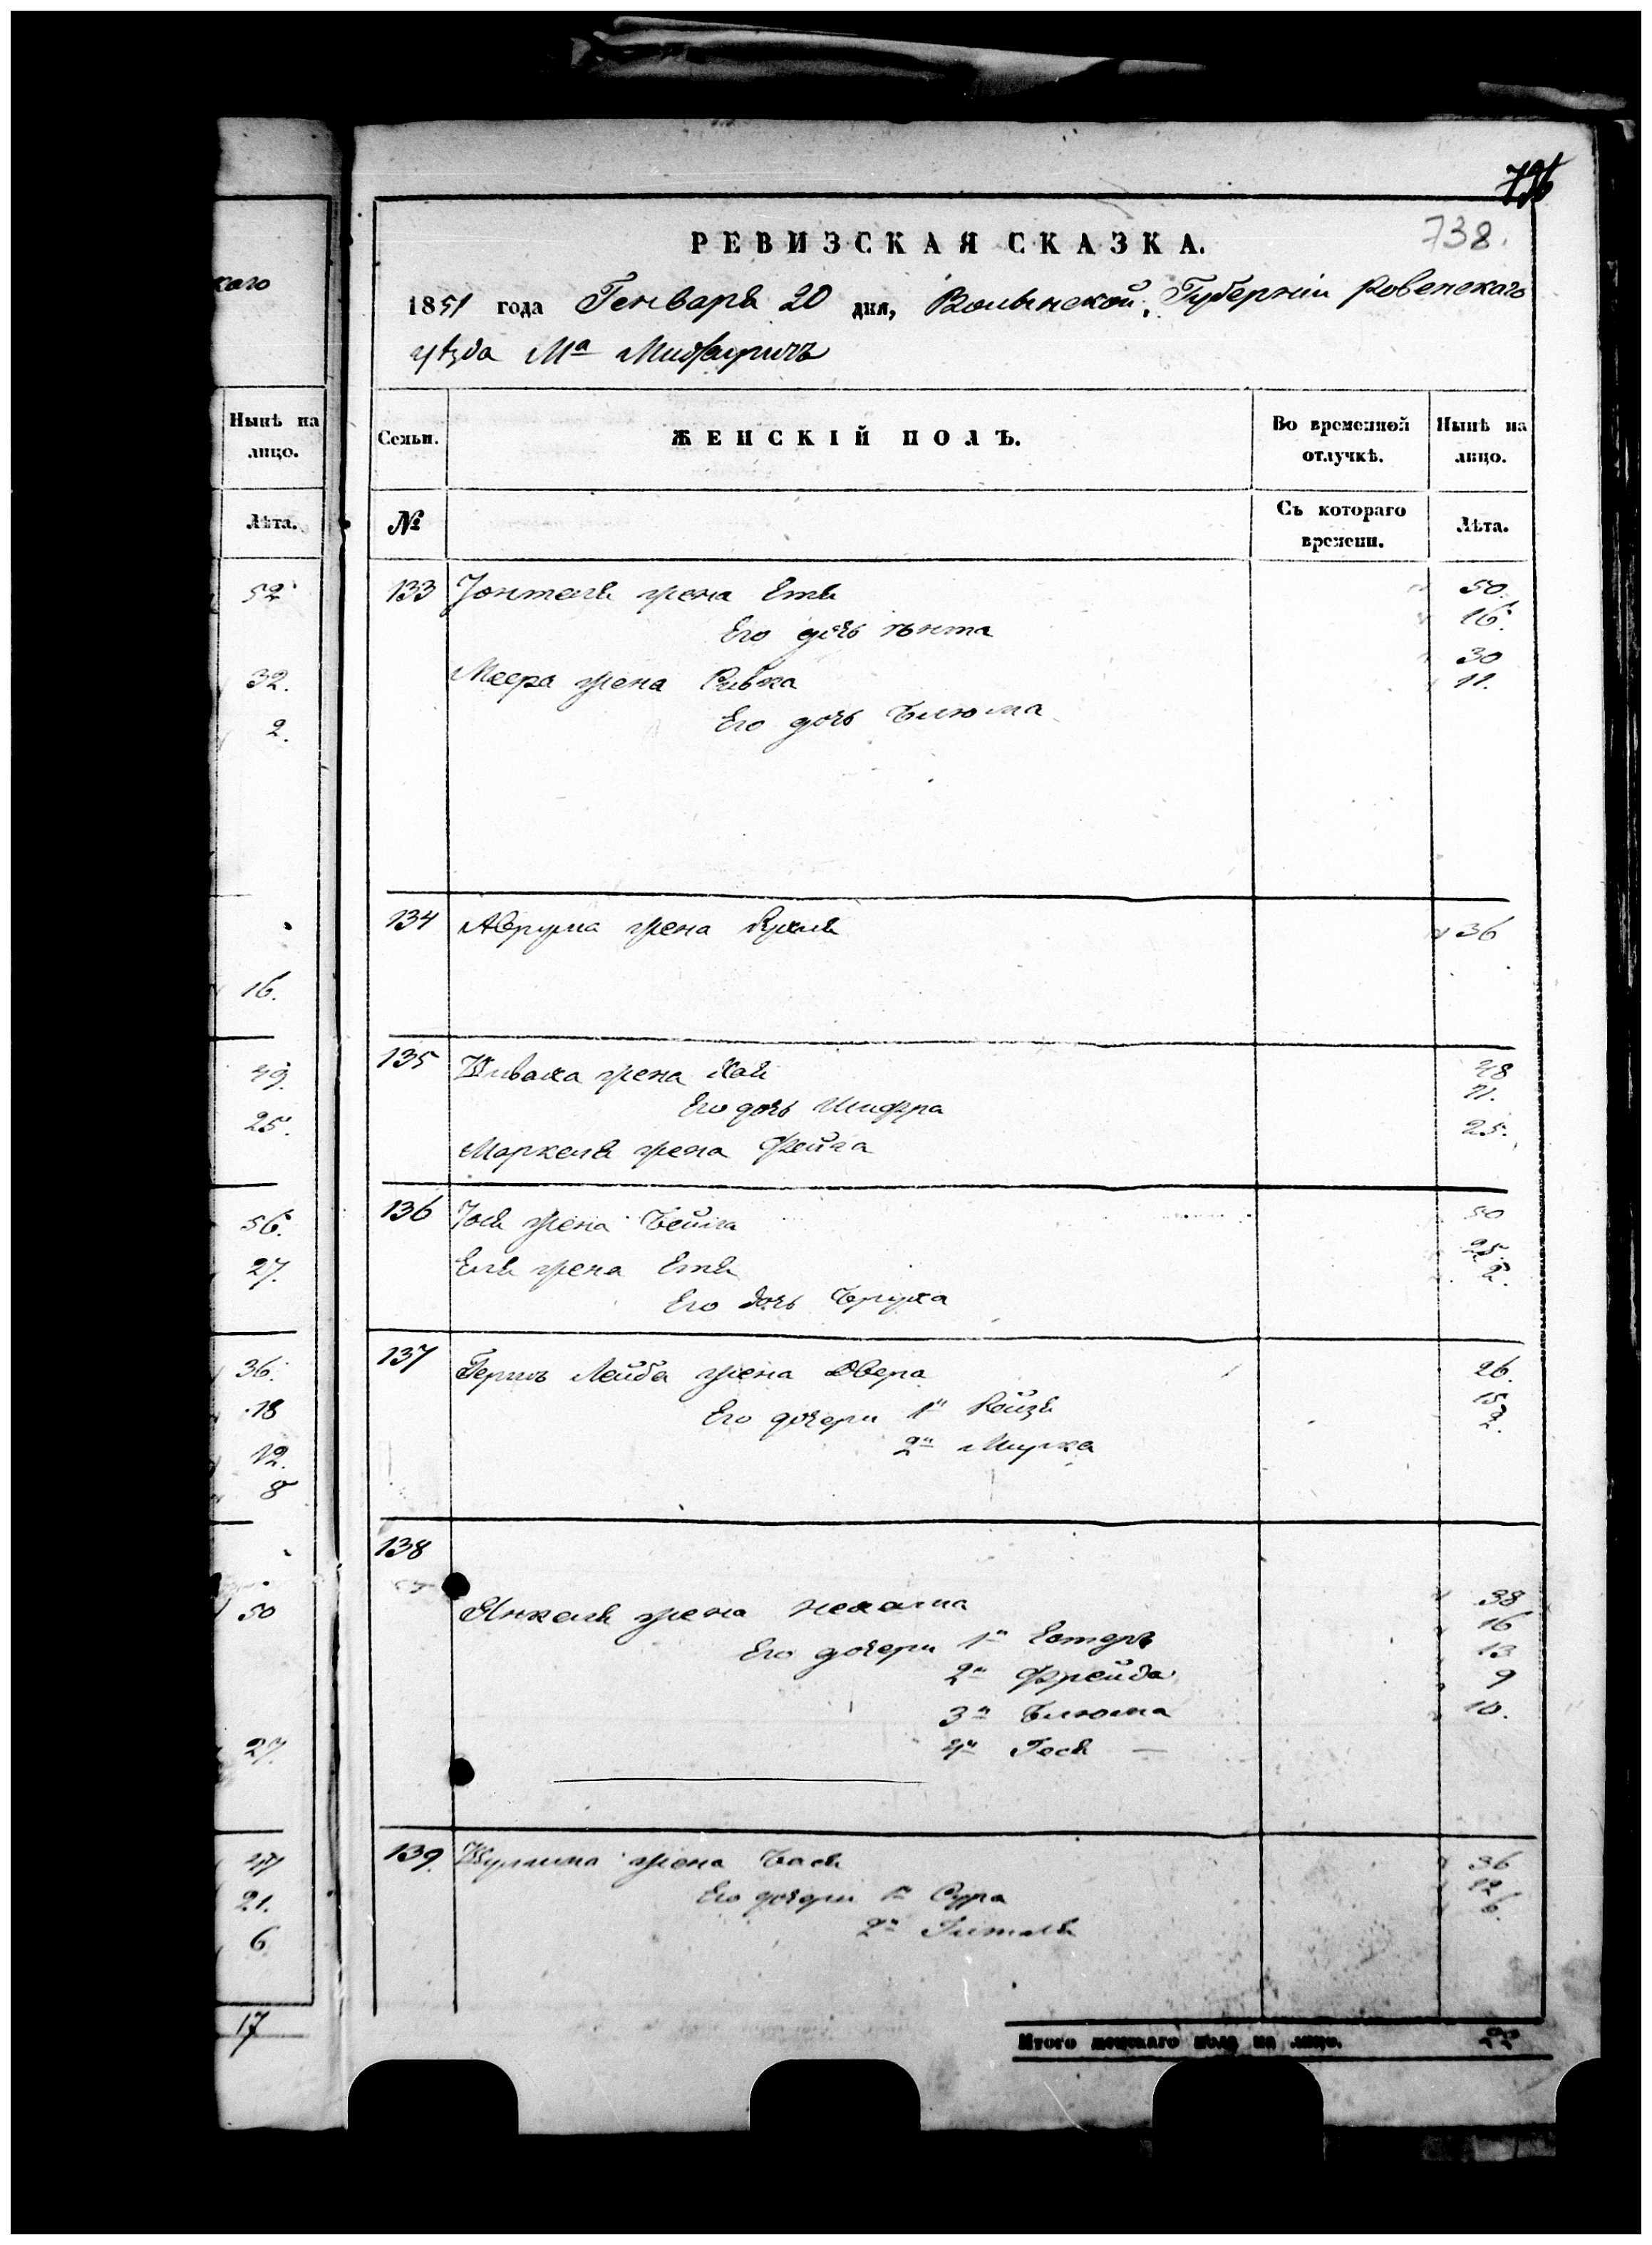 738.
РЕВИЗСКАЯ СКАЗКА.
1851 года Генваря 20 дня, Волынской Губерніи Ровенскаго
уѣзда Мª Межиричъ
каго
Нынѣ на лицо.
Лѣта.
52
32.
2.
16.
49.
25.
56.
27.
36.
18
12.
8
50
27.
47
21.
6
17
Семьи. ЖЕНСКІЙ ПОЛЪ. Во временной отлучкѣ. Нынѣ на лицо.
№ Съ котораго времени. Лѣта.
133 Іонтеля жена Етя 50.
Его дочь 16.
Меера жена Ривка 30
Его дочь Блюма 11.
134 Аврума жена Рухля 36
135 жена Хая 48
Его дочь Шифра 11.
Маркеля жена Фейга 25.
136 Іося жена Бейла 50
Еля жена Етя 25.
Его дочь Бруха 2.
137 Гершъ Лейба жена Двера 26.
Его дочери 1я Рейзя 15
2я Мирка 2.
138
Янкеля жена Нехама 38
Его дочери 1я Естеръ 16
2я Фрейда 13
3я Блюма 9
4я Гося — 10.
139. Шулима жена Бася 36
Его дочери 1я Сура 12
2я Гитля 6.
Итого женскаго пола на лицо. 22